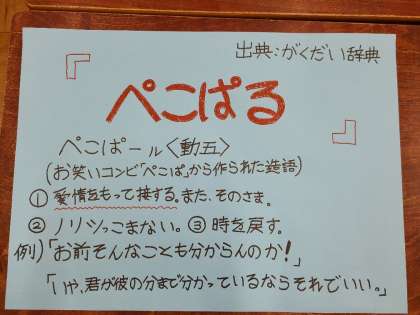 出典:がくだい辞典
『ぺこぱる』
ぺこぱール〈動五〉
(お笑いコンビ「ぺこぱ」から作られた造語)
① 愛情をもって接する。また、そのさま。
② ノリツッこまない。③ 時を戻す。
例)「お前そんなことも分からんのか!」
「いや、君が彼の分まで分かっているならそれでいい。」